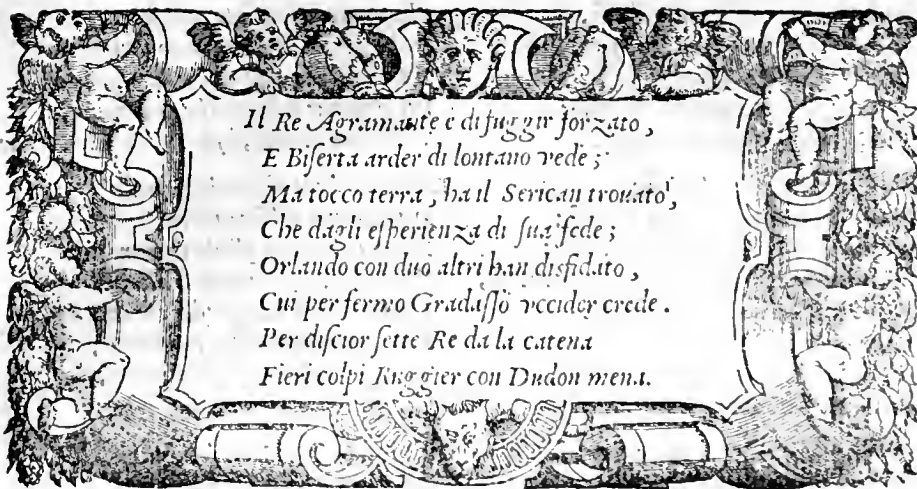 Il Re Agramante e di fuggir forzato,
E Biſerta arder di lontano vede;
Ma tocco terra, ha il Serican trouato,
Che dagli eſperienza di ſua fede;
Orlando con duo altri han disfidato,
Cui per fermo Gradaſſo vccider crede.
Per diſcior ſette Re da la catena
Fieri colpi Ruggier con Dudon mena.